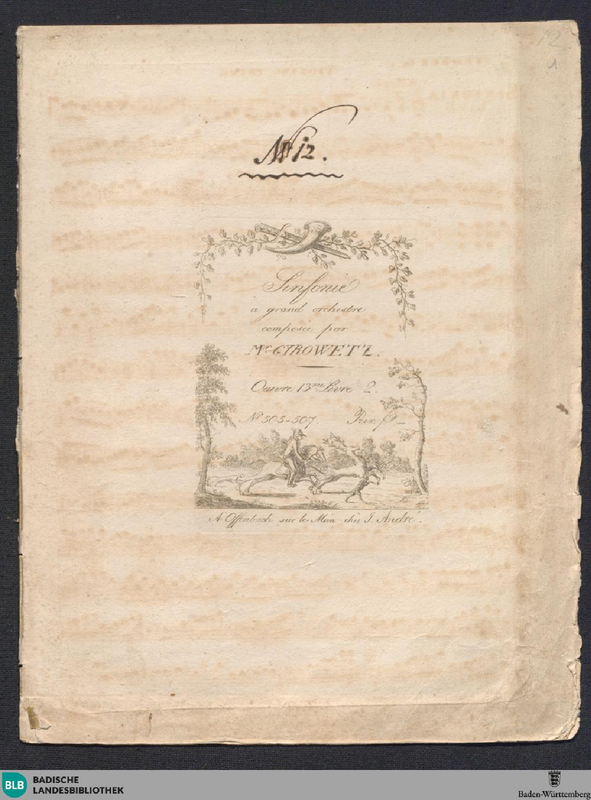 12
1
No 12.
Sinfonie
a grand orchestre
composée par
Mr. GYROWETZ.
Oeuvre 13me Livre 2.
No 505-507 Prix f
A Offenbach sur le Mein chés J. André.
BLB BADISCHE
LANDESBIBLIOTHEK
Baden-Württemberg